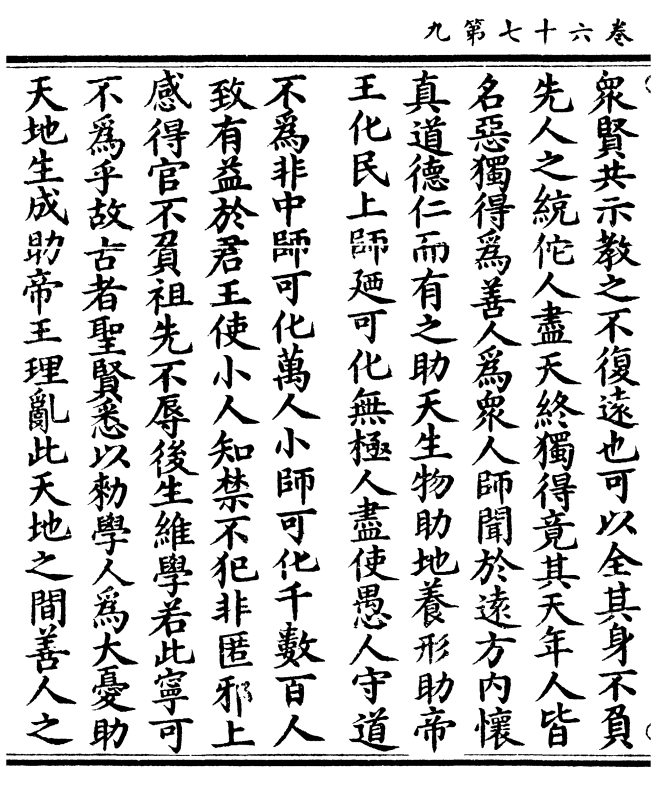 卷六十七第九
衆賢共示教之不復遠也可以全其身不負
先人之統佗人盡夭終獨得竟其天年人皆
名惡獨得爲善人爲衆人師聞於遠方内懷
真道德仁而有之助天生物助地養形助帝
王化民上師廼可化無極人盡使愚人守道
不爲非中師可化萬人小師可化千數百人
致有益於君王使小人知禁不犯非匿邪上
感得官不負祖先不辱後生維學若此寧可
不爲乎故古者聖賢悉以勑學人爲大憂助
天地生成助帝王理亂此天地之間善人之